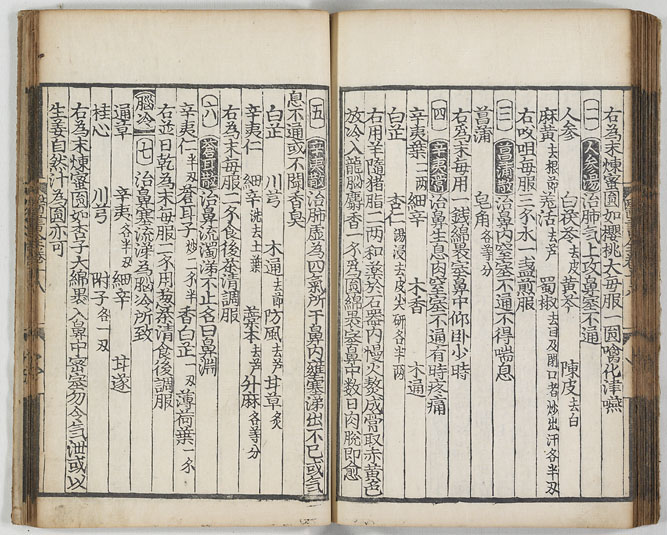 右為末煉蜜圓如櫻桃大每服一圓噙化津嚥
二 人參湯 治肺气上攻鼻塞不通
人參 白茯苓去皮 黃芩 陳皮去白
麻黃去根節 羗活去芦 蜀椒去目及閉口者炒出汗各半刄
右㕮咀每服三不水一盞煎服
三 菖蒲散 治鼻内窒塞不通不得喘息
菖蒲 皂角各等分
右為末每用一錢綿裹塞鼻中仰卧少時
四 辛夷膏 治鼻生息肉窒塞不通有時疼痛
辛夷葉二两 細辛 木香 木通
白芷 杏仁湯浸去皮尖研各半两
右用羊隨猪脂二两和藥於石器内慢火熬成膏取赤黃色
放冷入龍脳麝香一不為圓綿裹塞鼻中数日肉脫即愈
五 辛夷散 治肺虛為四气所干鼻内壅塞涕出不已或气
息不通或不聞香臭
白芷 川芎 木通去節 防風去芦 甘草炙
辛夷仁 細辛洗去土葉 藁本去芦 升麻各等分
右為末每服二不食後茶清調服
六 蒼耳散 治鼻流濁涕不止名曰鼻淵
辛夷仁半刄 蒼耳子炒一不半 香白芷一刄 薄荷葉一不
右並日乾為末每服二不用葱茶清食後調服
腦冷 七 治鼻塞流涕為腦冷所致
通草 辛夷各半刄 細辛 甘遂
桂心 川芎 附子各一刄
右為末煉蜜圓如杏子大綿裹入鼻中密塞勿令气泄或以
生姜自然汁為圓亦可